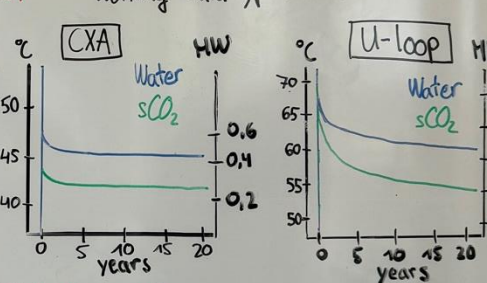 °C CXA MW
Water
sCO₂
50
45
40
0,6
0,4
0,2
0 5 10 15 20
years
°C U-loop
Water
sCO₂
70
65
60
55
50
0 5 10 15 20
years